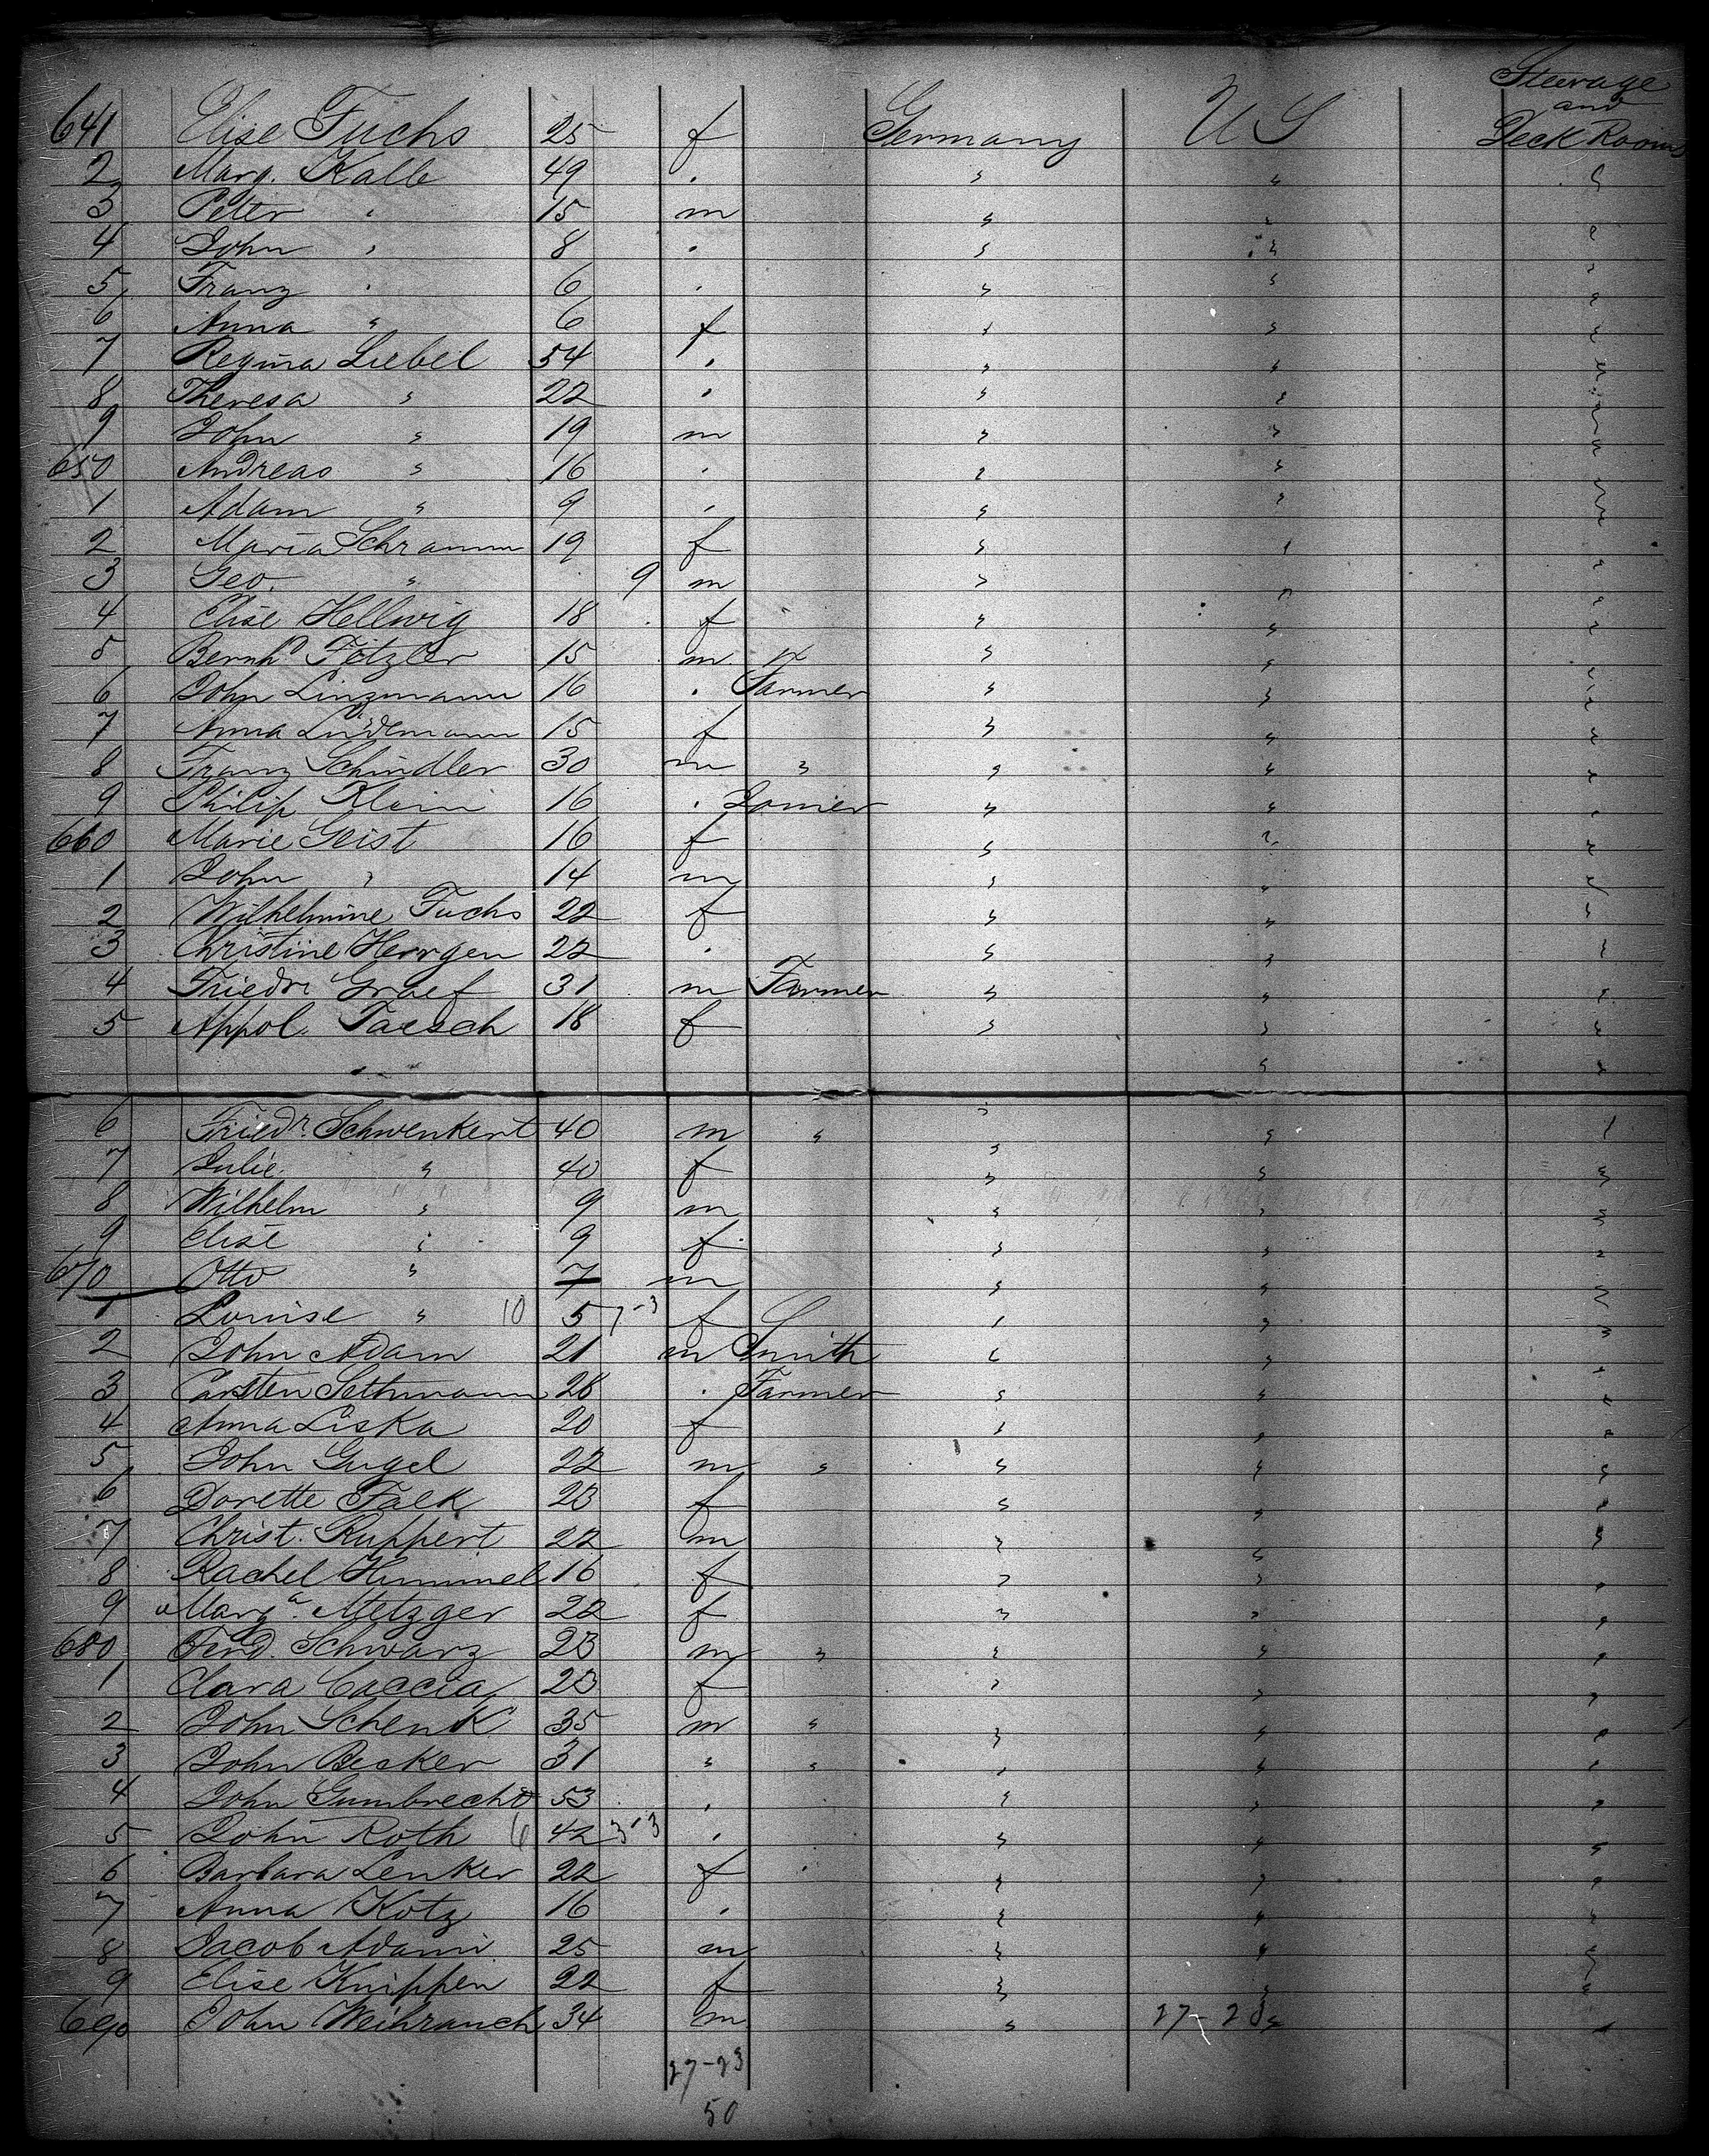 Steerage
and
Deck Rooms
641 Elise Fuchs 25 f Germany U S
2 Marg. Kalb 49 . " " "
3 Peter " 15 m " " "
4 John " 8 . " " "
5 Franz " 6 . " " "
6 Anna " 6 f " " "
7 Regina Liebel 54 . " " "
8 Theresa " 22 . " " "
9 John " 19 m " " "
650 Andreas " 16 . " " "
1 Adam " 9 . " " "
2 Maria Schramm 19 f " " "
3 Geo. " 9 m " " "
4 Elise Hellwig 18 f " " "
5 Bernhd Fötzler 15 m " " "
6 John Linzmann 16 . Farmer " " "
7 Anna Lindemann 15 f " " "
8 Franz Schindler 30 m " " " "
9 Philip Klein 16 . " " "
660 Marie Geist 16 f " " "
1 John " 14 m " " "
2 Wilhelmine Fuchs 22 f " " "
3 Christine Herrgen 22 . " " "
4 Friedr Graef 31 m Farmer " " "
5 Appol. Taesch 18 f " " "
6 Friedr. Schwenkert 40 m " " " "
7 Julie " 40 f " " "
8 Wilhelm " 9 m " " "
9 Elise " 9 f " " "
670 Otto " 7 m " " "
1 Louise " 10 5 7-3 f " " "
2 John Adam 21 m Smith " " "
3 Carsten Sethmann 28 . Farmer " " "
4 Anna Liska 20 f " " "
5 John Gugel 22 m " " " "
6 Dorette Falk 23 f " " "
7 Christ. Ruppert 22 m " " "
8 Rachel Hummel 16 f " " "
9 Marga. Metzger 22 f " " "
680 Ferd. Schwarz 23 m " " " "
1 Clara Caccia 23 f " " "
2 John Schenk 35 m " " " "
3 John Becker 31 " " " " "
4 John Gumbrecht 53 . " " "
5 John Roth 6 42 3-3 . " " "
6 Barbara Lenker 22 f " " "
7 Anna Kotz 16 . " " "
8 Jacob Adami 25 m " " "
9 Elise Knippen 22 f " " "
690 John Weihrauch 34 m " "
27-23
50